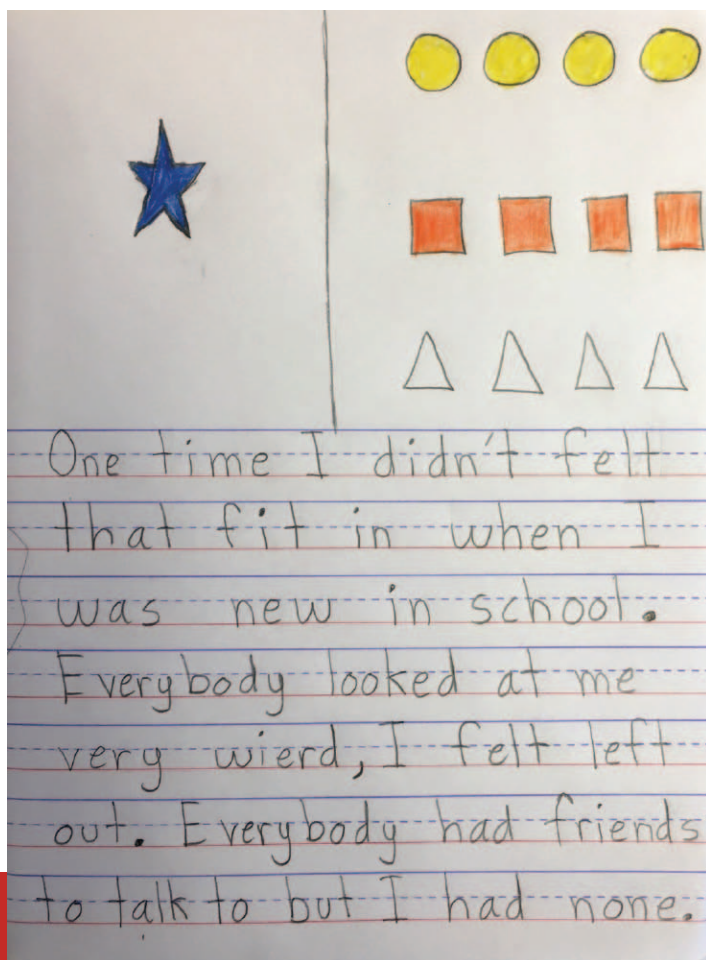 One time I didn't felt
that fit in when I
was new in school.
Everybody looked at me
very wierd, I felt left
out. Everybody had friends
to talk to but I had none.